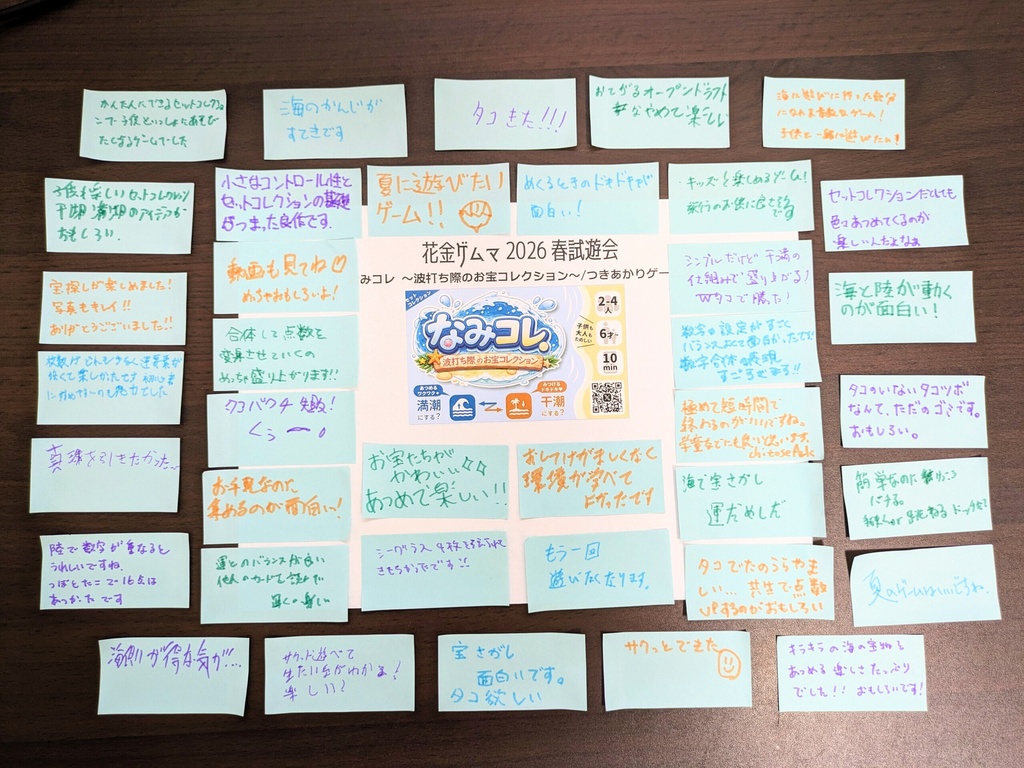 かんたんにできるセットコレクション
こで子供といっしょにあそび
たくなるゲームでした
海のかんじが
すてきです
タコきた!!!
おてがるオープンドラフト
なやめて楽しい
海に遊びに行った気分
になれる素敵なゲーム!
子供と一緒に遊びたい!
子供も楽しいセットコレクション
干潮満潮のアイデアが
おもしろい.
小さなコントロール性と
セットコレクションの
つまった良作です.
夏に遊びたい
ゲーム!!
めくるときのドキドキが
面白い!
キッズも楽しめるゲーム!
旅行のお供に良さそう
です
セットコレクションだとしても
色々あつめてくるのが
楽しいんだよなぁ
宝探しが楽しめました!
写真もキレイ!!
ありがとうございました!!
動画も見てね♡
めちゃおもしろいよ!
花金ゲムマ 2026 春試遊会
みコレ ～波打ち際のお宝コレクション～/つきあかりゲー
セット
コレクション
なみコレ
波打ち際のお宝コレクション
2-4
人
子供も
大人も
たのしい
6才~
10
min
あつめる
ワクワク
満潮
にする?
みつける
ドキドキ
干潮
にする?
シンプルだけど干満の
仕組みで盛り上がる!
Wタコで勝った!
海と陸が動く
のが面白い!
合体して点数を
変身させていくの
めっちゃ盛り上がります!!
数字の設定がすごく
バランスよくて面白かったです
数字合体の表現
すごろできる!!
タコパクチ失敗!
くぅー。
極めて短時間で
終わるのがいいですね。
タコのいないタコツボ
なんて、ただのゴミです。
おもしろい。
真珠を引きたかった…
お宝たちが
かわいい
あつめて楽しい!!
おしつけがましくなく
環境が学べて
よかったです
お手軽なのに
集めるのが面白い!
海で宝さがし
運だめしだ
簡単なのに
陸で数字が重なると
うれしいですね.
つぼとたこで16点は
あつかったです
運とのバランスが良い
他人のカードも
早くの楽しい
シーグラス4枚そろえられて
きもちよかったです!!
もう一回
遊びたくなります.
タコでたのうらやま
しい... 共生で点数
UPするのがおもしろい
夏のゲームはいいですね.
海側が得な気が...
サクッと遊べて
楽しい?
宝さがし
面白いです。
タコ欲しい
サクっとできた
キラキラの海の宝物を
あつめる楽しさたっぷり
でした!! おもしろいです!